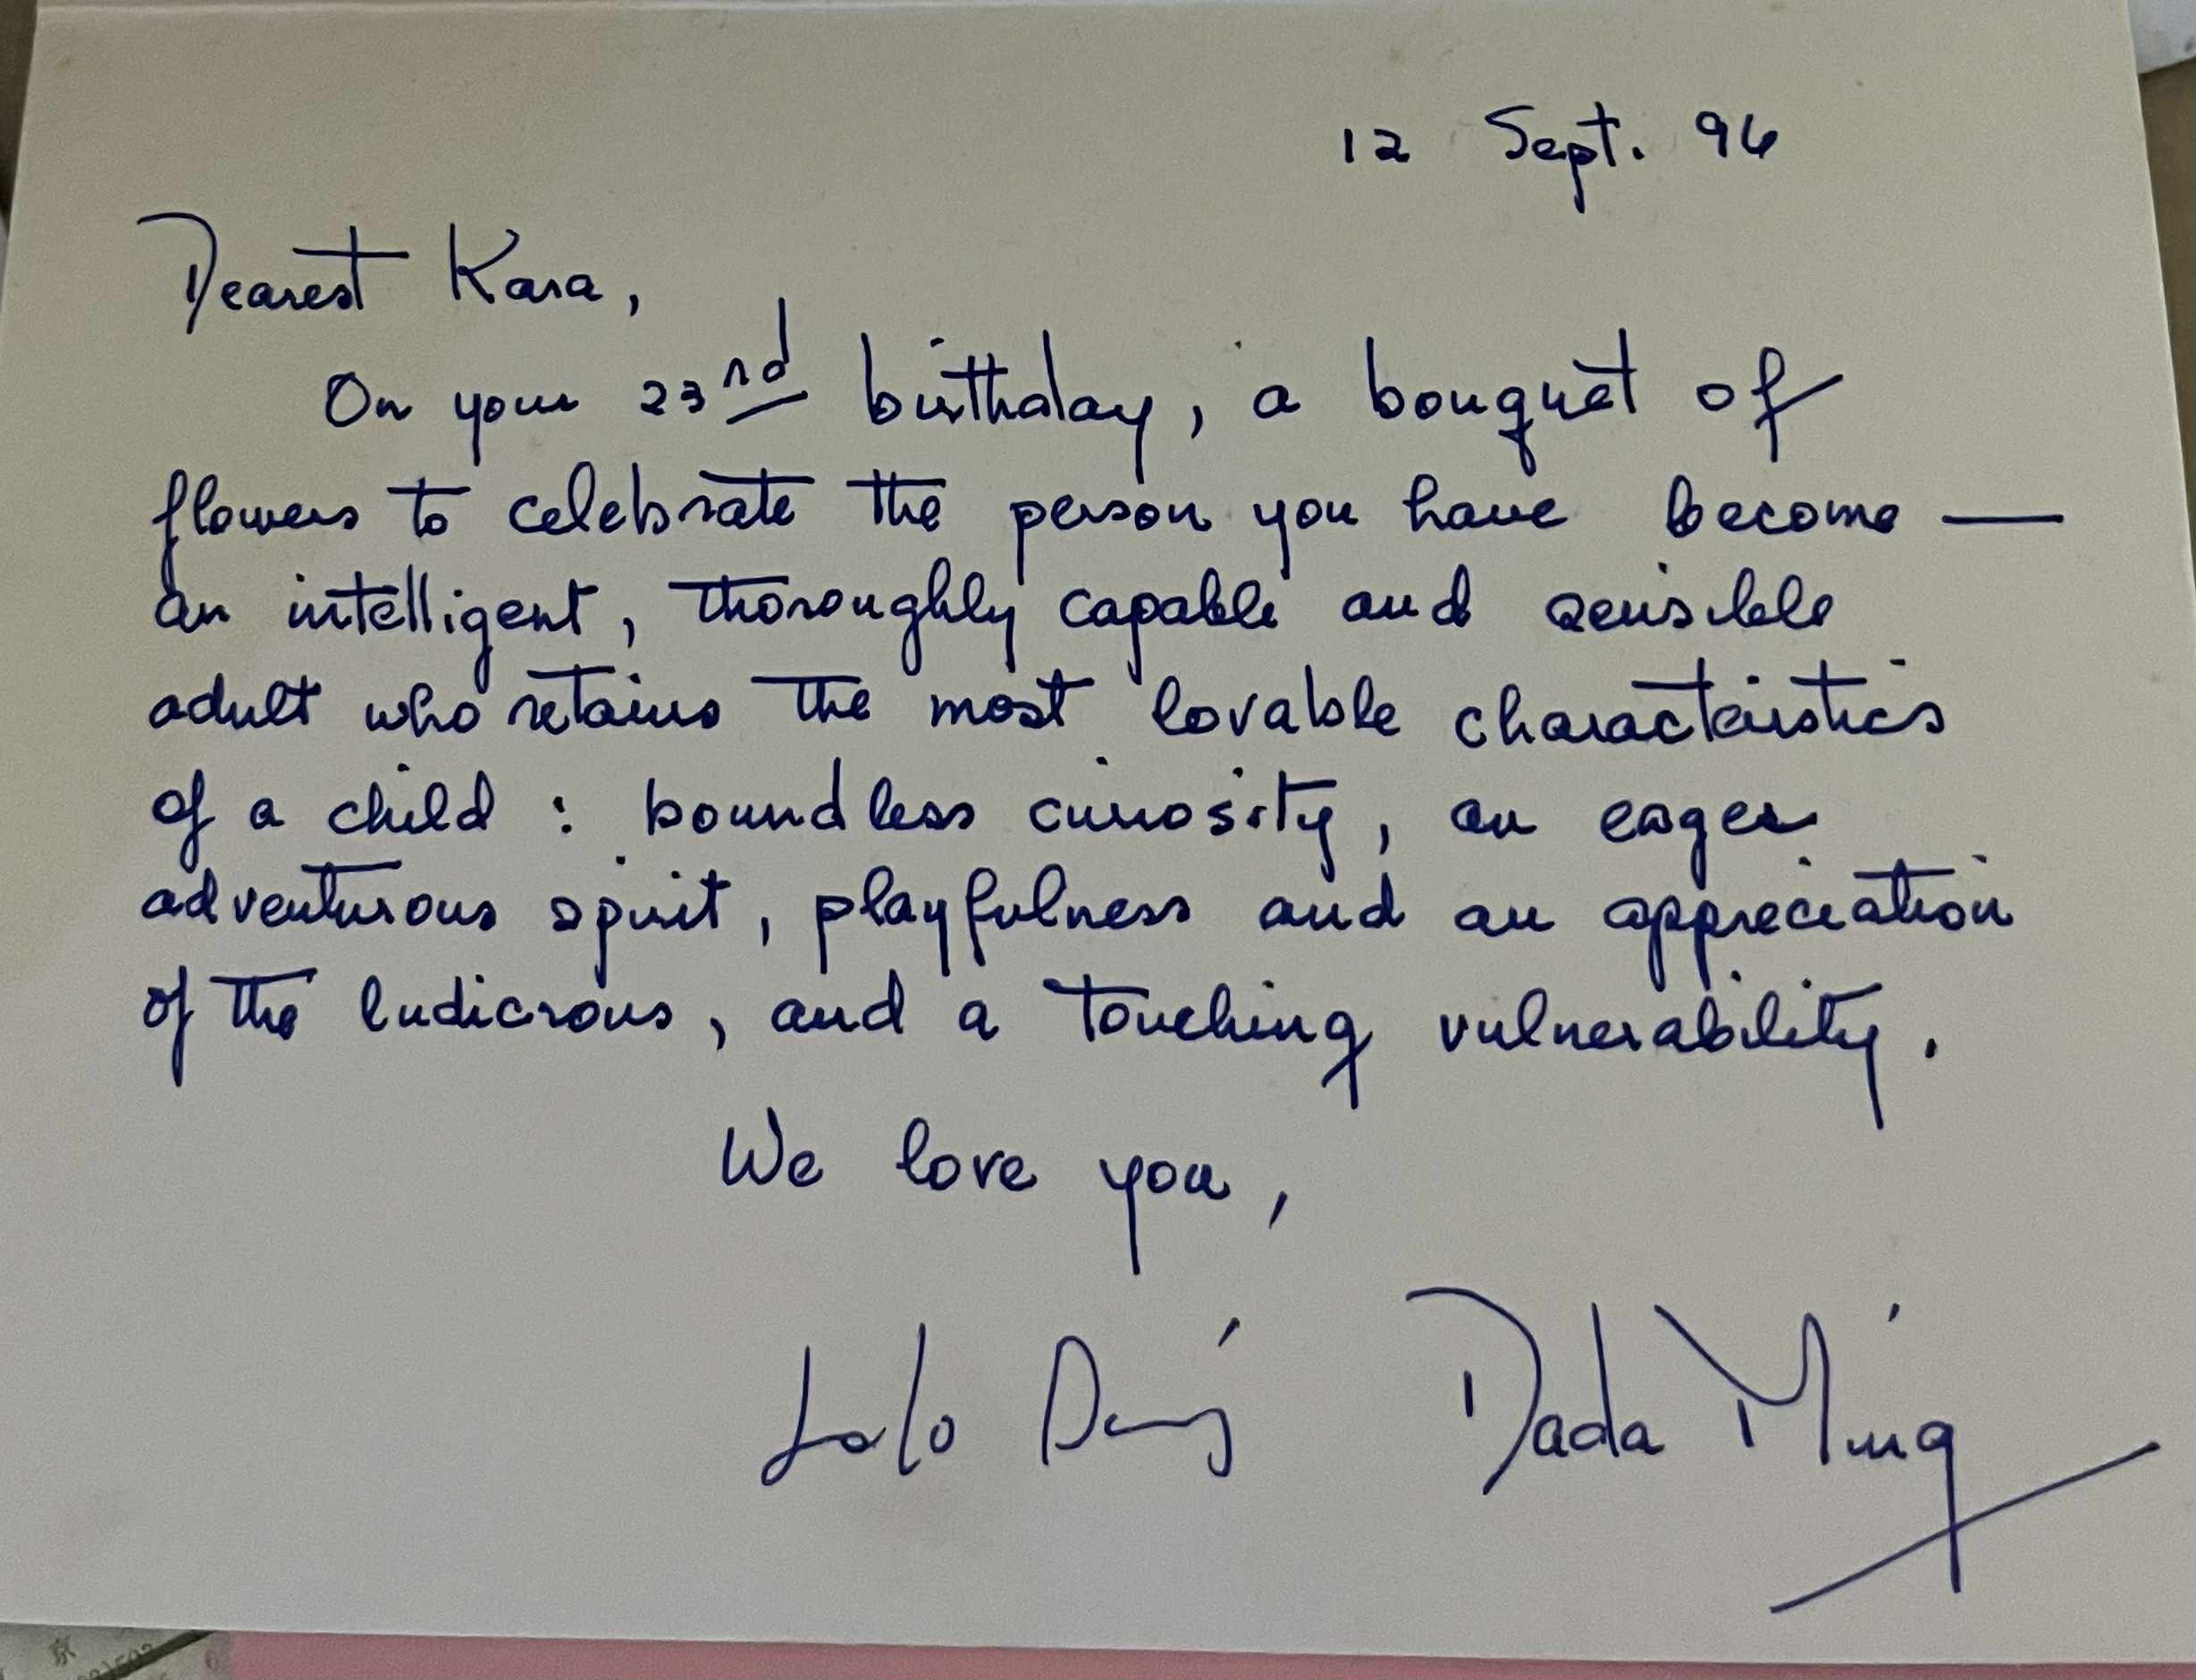 12 Sept. 96
Dearest Kara,
On your 23nd birthday, a bouquet of
flowers to celebrate the person you have become —
an intelligent, thoroughly capable and sensible
adult who retains the most lovable characteristics
of a child : boundless curiosity, an eager
adventurous spirit, playfulness and an appreciation
of the ludicrous, and a touching vulnerability.
We love you,
Lolo Dada Ming
京